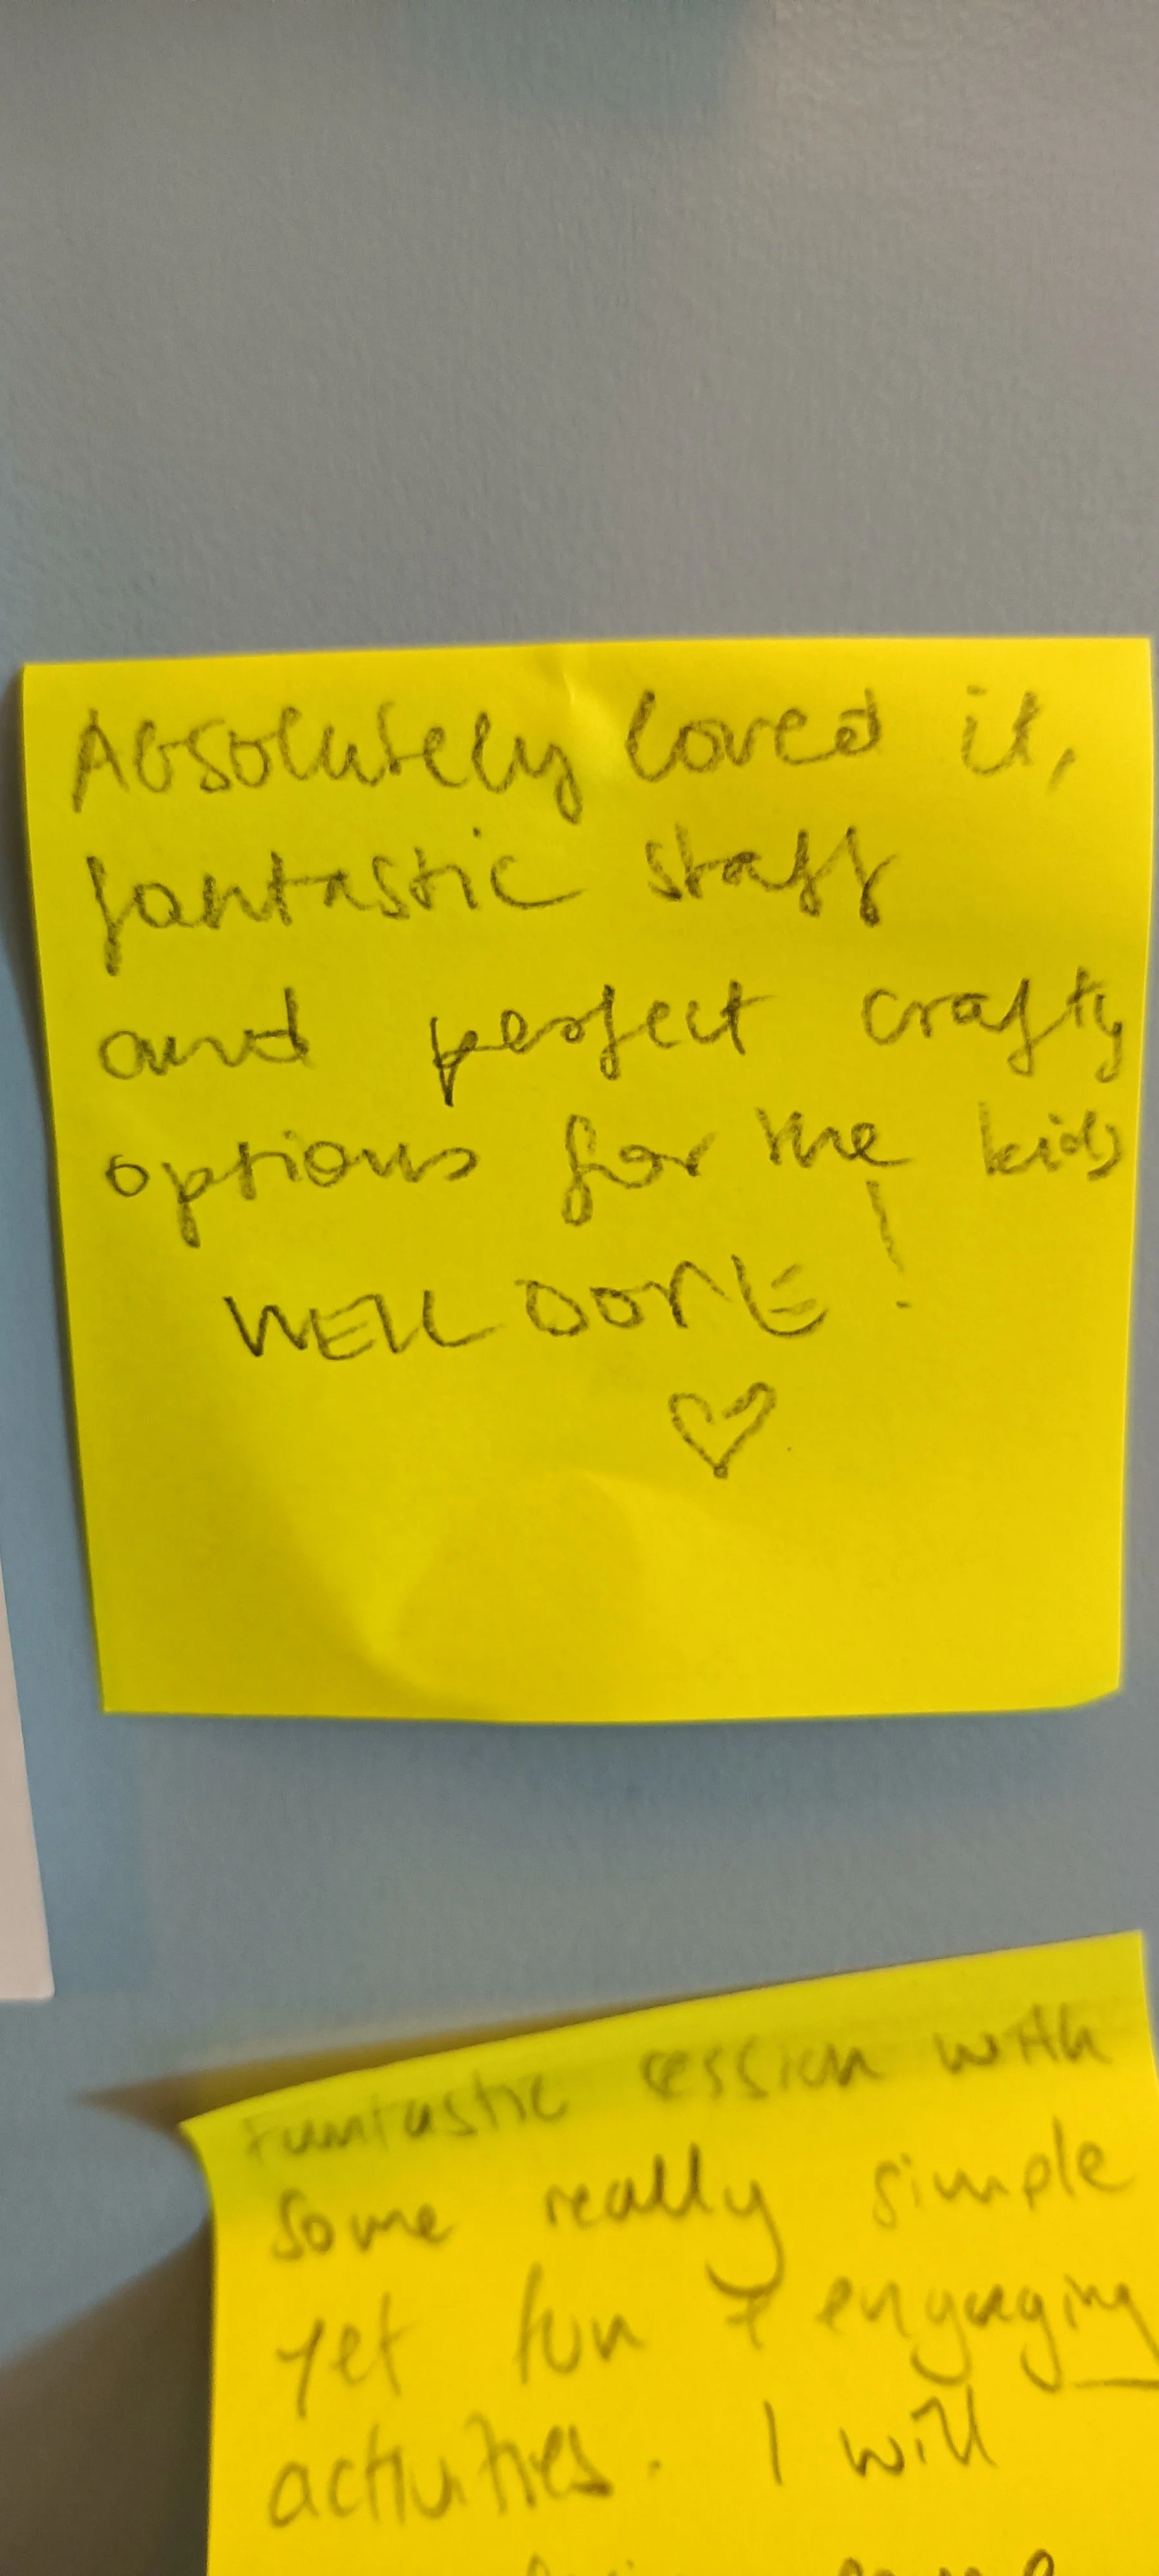 Absolutely loved it,
fantastic staff
and perfect crafty
options for the kids
WELL DONE !
♡
Funtastic session with
some really simple
yet fun + engaging
activities. I will